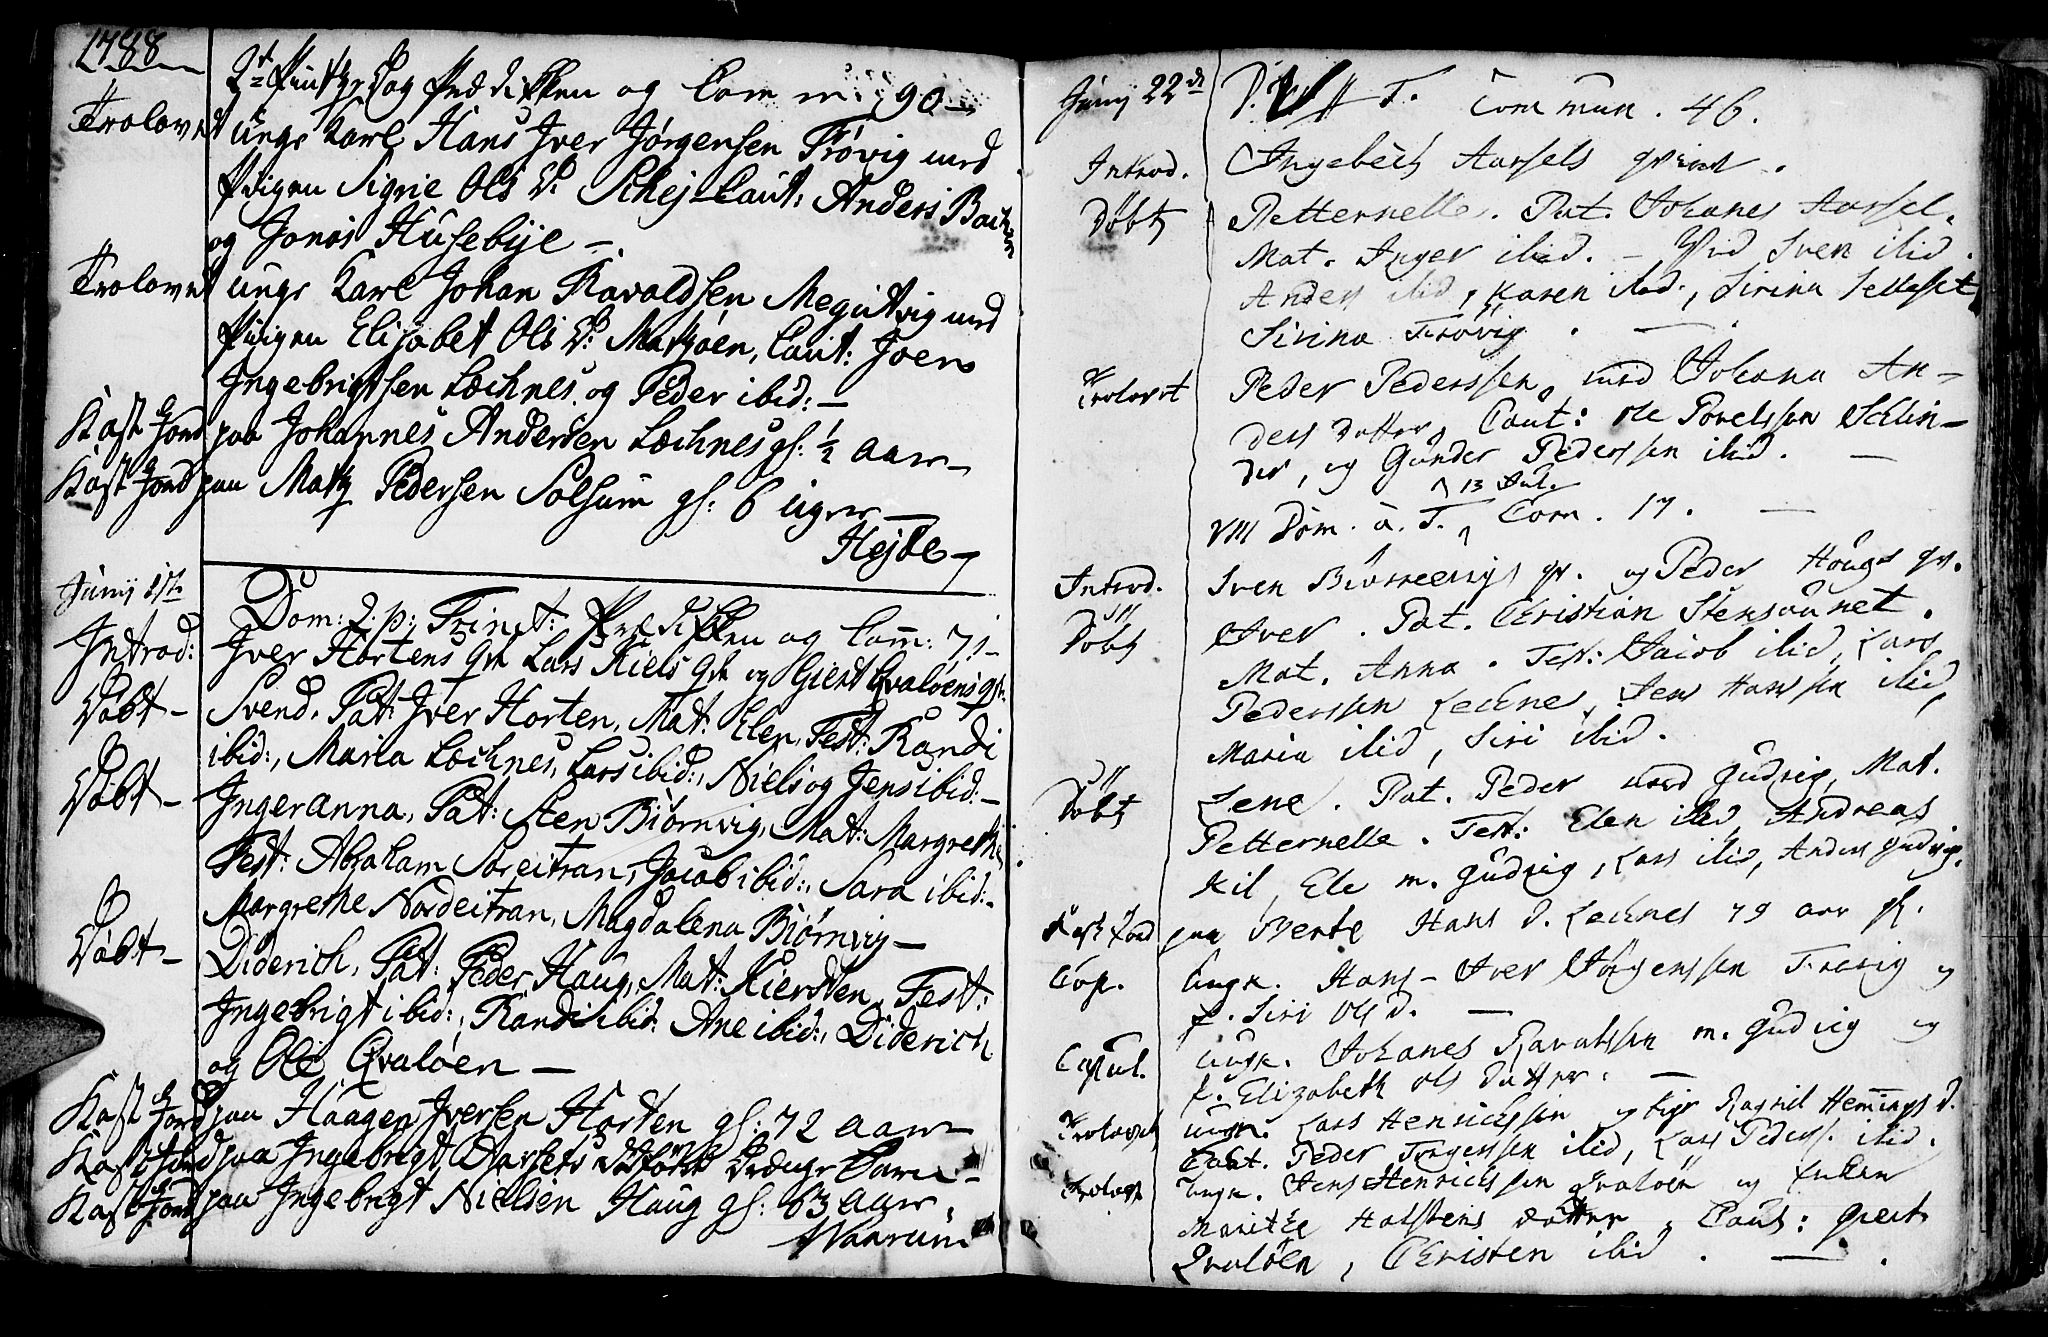 1788
2t Pintz Dag Prædikken og Comm: 90 –
Trolovet unge Karl Hans Iver Jørgensen Trøvig med
Pigen Sigrie Ols D: Skej – Caut: Anders Bachen
og Jonas Husebye –
Trolovet unge Karl Johan Ravaldsen Megutvig med
Pigen Elisabet Ols D: Matzøen, Caut: Joen
Ingebrigtsen Lechnes og Peder ibid: –
Kast Jord paa Johannes Andersen Lechnes gl: ½ aar –
Kast Jord paa Matz Pedersen Solsum gl: 6 uger –
Hejde
Junij
Dom: 2. p: Trinit: Prædikken og Com: 71 –
Introd: Iver Hortens Qv Lars Kiels Qv og Giert Qvaløens Qv:
Døbt – Svend, Pat: Iver Horten, Mat: Elen, Test: Randi
ibid:, Maria Lechnes, Lars ibid:, Niels og Jens ibid: –
Døbt – Inger Anna, Pat: Sten Biørnvig, Mat: Margrethe
Test: Abraham Soreitran, Jacob ibid:, Sara ibid: –
Margrethe Nordeitran, Magdalena Biørnvig –
Døbt – Diderich, Pat: Peder Haug, Mat: Kiersten, Test:
Ingebrigt ibid:, Randi ibid: Ane ibid:, Diderich
og Ole Qvaløen –
Kast Jord paa Haagen Iversen Horten gl: 72 aar –
Kast Jord paa Ingebrigt Aarsets Dødfødt Drenge Barn –
Kast Jord paa Ingebrigt Nielsen Haug gl: 63 aar,
Naarum
Junij 22de D. V p T. Commun. 46.
Introd. Ingebrich Aarsels qvind.
Døbt Petternelle. Pat. Johanes Aarsel.
Mat. Inger ibid. – Test Sven ibid.
Anders ibid, Karen ibid., Sirina Setteset
Sirina Trøvig. –
Trolovet Peder Pederssen, med Johana An-
ders Datter, Caut: Ole Povelssen Schlin-
der, og Gunder Pederssen ibid. –
13 Jul.
VIII Dom. a. T. Com. 17. –
Introd. Sven Biørneevigs qv. og Peder Haugs qv.
Døbt Iver. Pat. Christian Stensøunet.
Mat. Anna. Test: Jacob ibid, Lars
Pederssen Lechne, Jens Hanssen ibid,
Maria ibid, Siri ibid.
Døbt Lene. Pat. Peder nord Gudvig, Mat.
Petternelle. Test: Elen ibid Andreas
Kil, Ele m. Gudvig, Lars ibid, Anders Gudvig.
Kast Jord paa Berte Hans D. Lechnes 79 aar gl.
Cop. Ungk. Hans – Iver Jørgenssen Trøvig og
p. Siri Ols D. –
Copul. Ungk. Johanes Ravalssen m. Gudvig og
p. Elizabeth Ols Datter. –
Trolovet Ungk. Lars Henrichssen og Pige Ragnil Hemmings D.
Caut. Peder Torgerssen ibid, Lars Peders. ibid.
Trolovet Ungk. Jens Henrichssen Qvaløen og Enken
Marithe Halstens Datter, Caut: Giert
Qvaløen, Christen ibid. – .